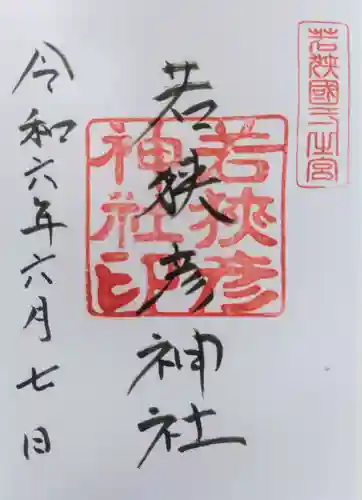 若狭國一之宮
若狭彦
神社印
若狭彦神社
令和六年六月七日